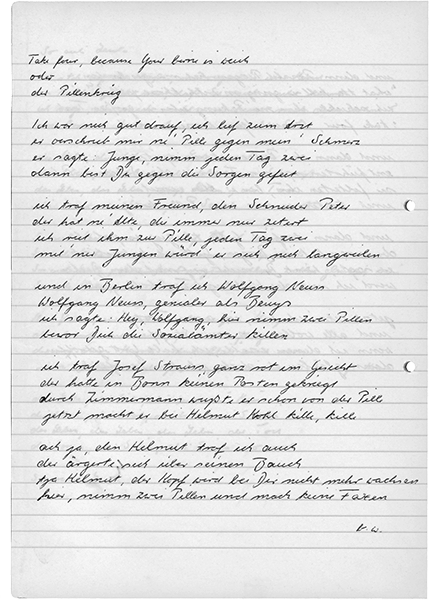 Take four, because Your birne is weich
oder
der Pillenkrieg
Ich war nich gut drauf, ich lief zum Arzt
er verschrieb mir ne' Pille gegen mein' Schmerz
er sagte: Junge, nimm jeden Tag zwei
dann bist Du gegen die Sorgen gefeit
ich traf meinen Freund, den Schneider Peter
der hat ne' Alte, die immer nur zetert
ich riet ihm zur Pille, jeden Tag zwei
mit ner Jungen würd' er sich nich langweilen
und in Berlin traf ich Wolfgang Neuss
Wolfgang Neuss, genialer als Beuys
ich sagte: Hey, Wolfgang, hier nimm zwei Pillen
bevor Dich die Sozialämter killen
ich traf Josef Strauss, ganz rot im Gesicht
der hatte in Bonn keinen Posten gekriegt
durch Zimmermann wußte er schon von der Pille
jetzt macht er bei Helmut Kohl kille, kille
ach ja, den Helmut traf ich auch
der ärgerte sich über seinen Bauch
tja Helmut, der Kopf wird bei Dir nicht mehr wachsen
hier, nimm zwei Pillen und mach keine Faxen
V. W.